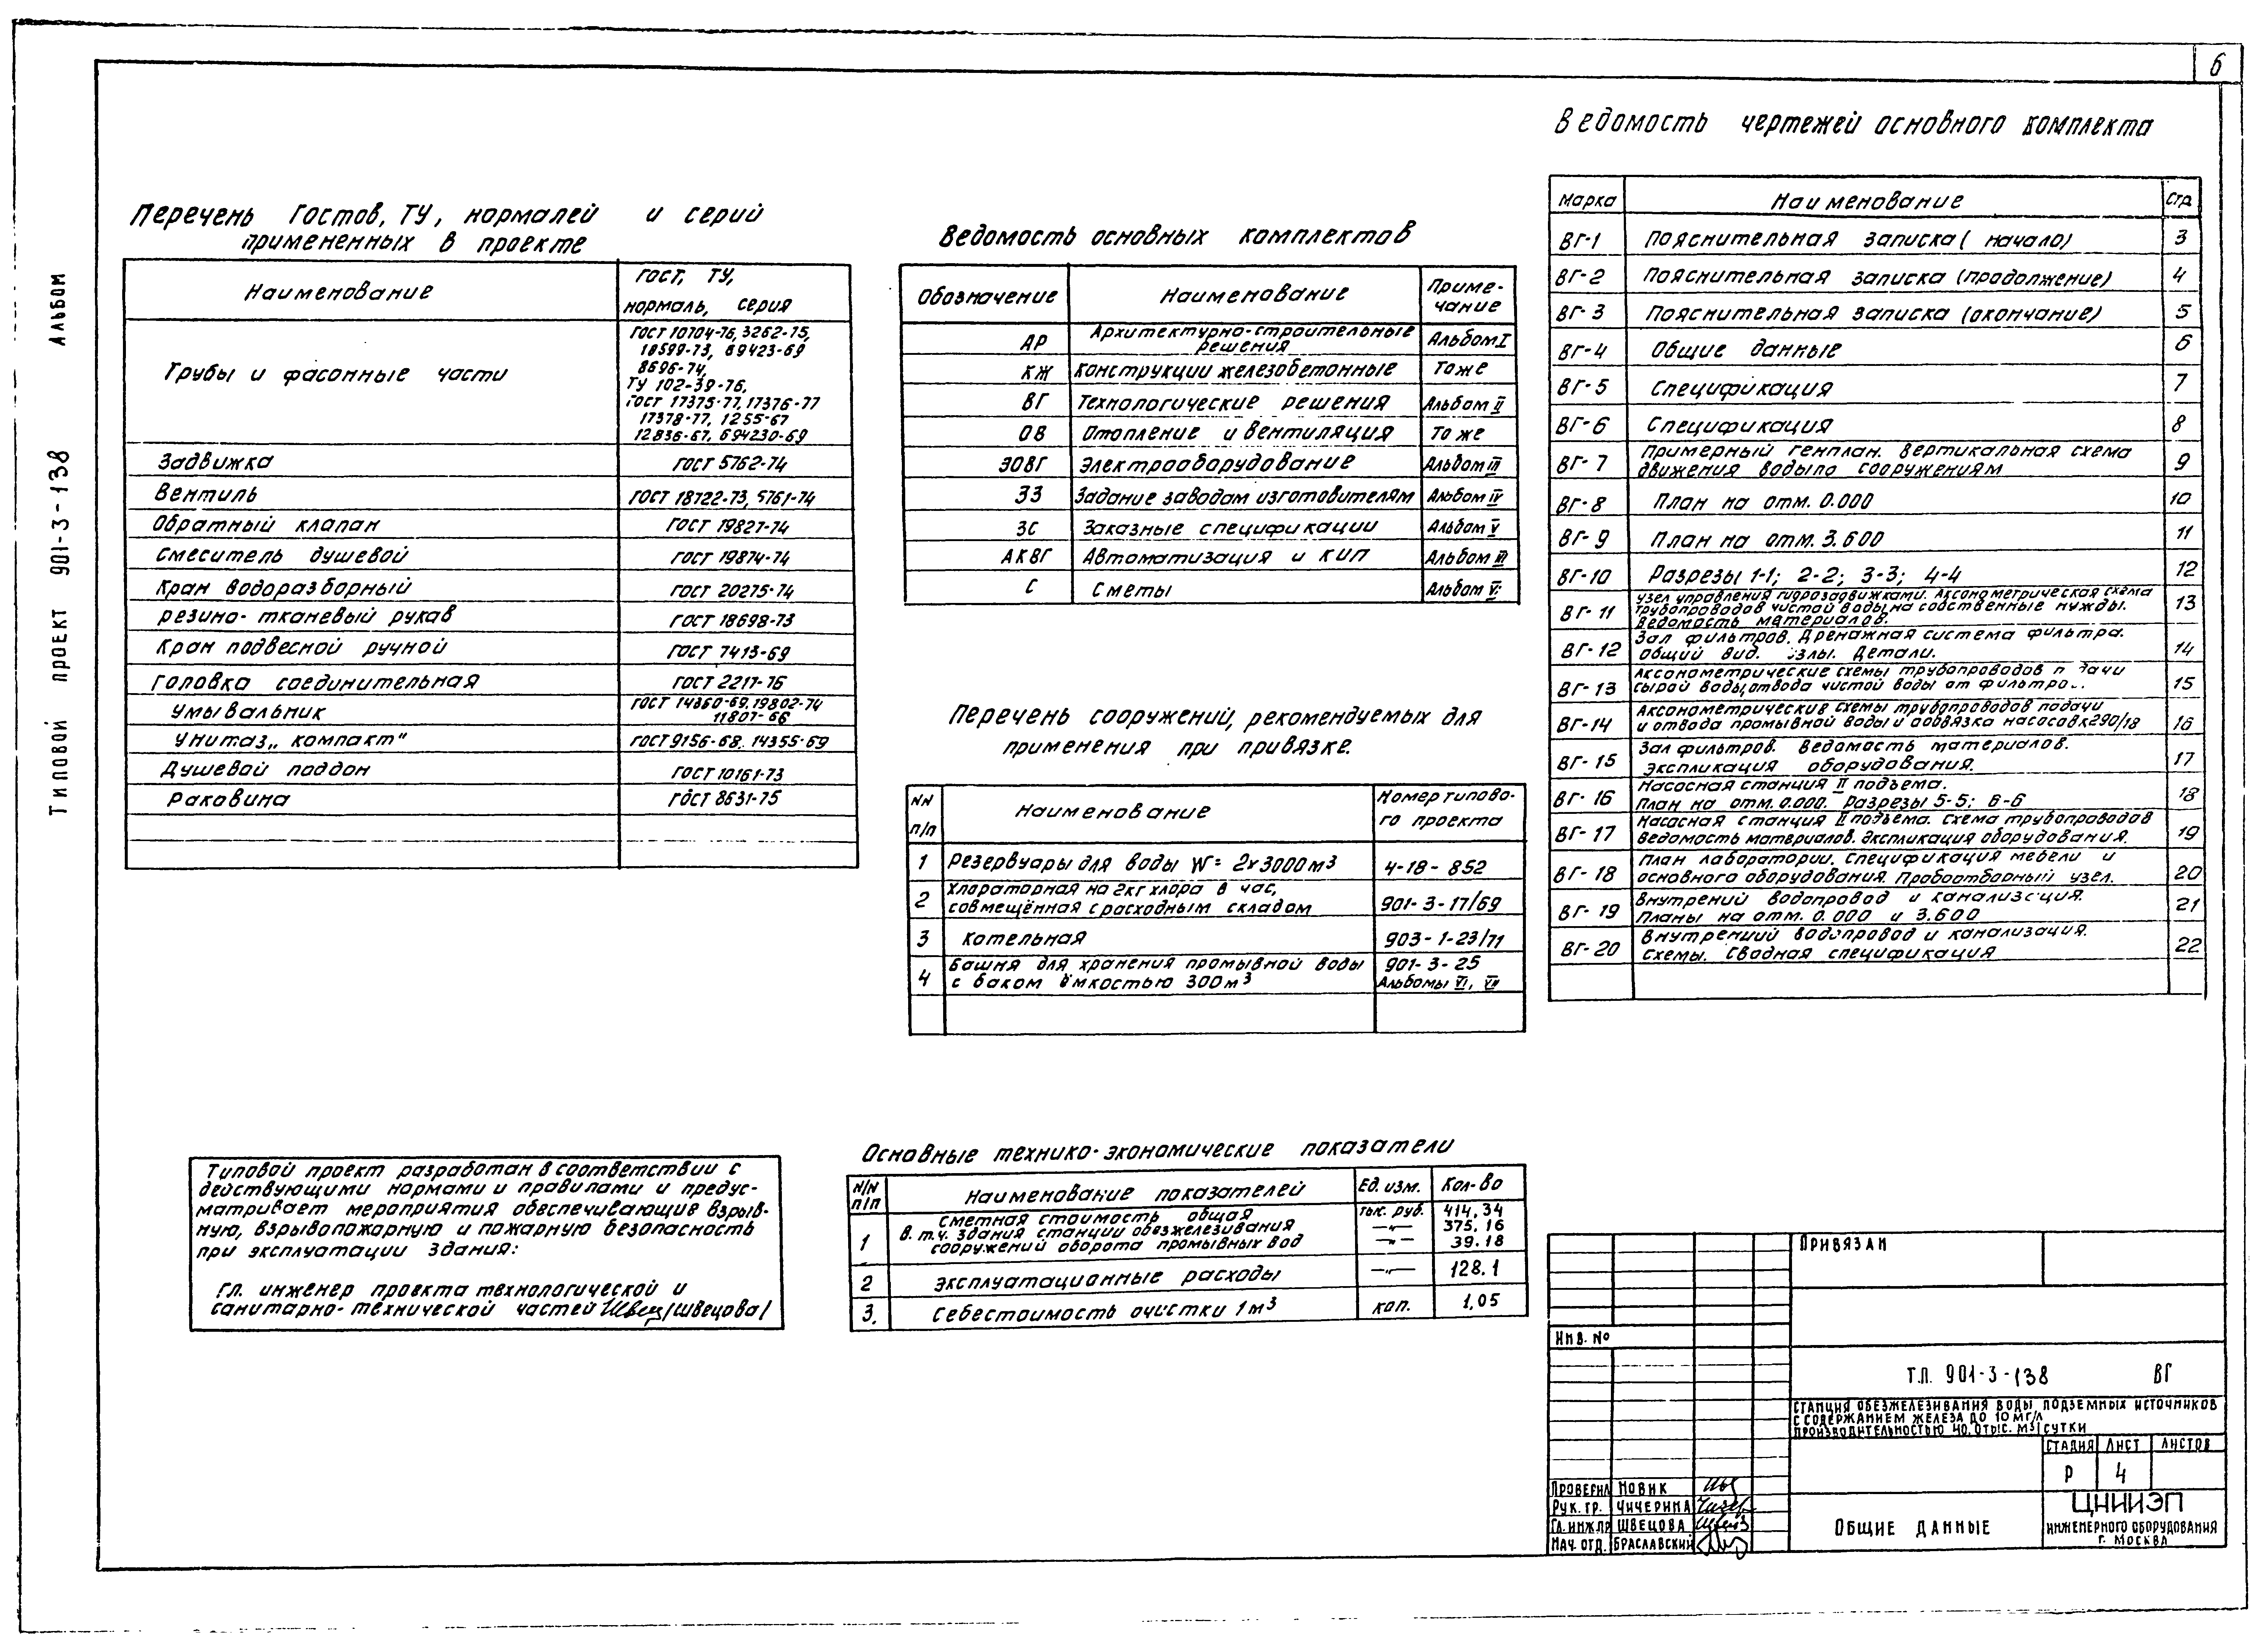 6
Типовой проект 901-3-138 Альбом
Перечень Гостов, ТУ, нормалей и серий
примененных в проекте
Наименование
ГОСТ, ТУ,
нормаль, серия
Трубы и фасонные части
ГОСТ 10704-76, 3262-75,
18599-73, 69423-69
8696-74,
ТУ 102-39-76,
ГОСТ 17375-77, 17376-77
17378-77, 1255-67
12836-67, 694230-69
Задвижка ГОСТ 5762-74
Вентиль ГОСТ 18722-73, 5761-74
Обратный клапан ГОСТ 19827-74
Смеситель душевой ГОСТ 19874-74
Кран водоразборный ГОСТ 20275-74
резино-тканевый рукав ГОСТ 18698-73
Кран подвесной ручной ГОСТ 7413-69
Головка соединительная ГОСТ 2217-76
Умывальник ГОСТ 14360-69, 19802-74
11807-66
Унитаз „компакт" ГОСТ 9156-68. 14355-69
Душевой поддон ГОСТ 10161-73
Раковина ГОСТ 8631-75
Ведомость основных комплектов
Обозначение Наименование Приме-
чание
АР Архитектурно-строительные
решения Альбом I
КЖ Конструкции железобетонные То же
ВГ Технологические решения Альбом II
ОВ Отопление и вентиляция То же
ЭОВГ Электрооборудование Альбом III
ЗЗ Задание заводам изготовителям Альбом IV
ЗС Заказные спецификации Альбом V
АКВГ Автоматизация и КИП Альбом III
С Сметы Альбом VI
Перечень сооружений, рекомендуемых для
применения при привязке.
NN
п/п
Наименование
Номер типово-
го проекта
1 Резервуары для воды W= 2х3000м³ 4-18-852
2 Хлораторная на 2кг хлора в час,
совмещённая с расходным складом 901-3-17/69
3 Котельная 903-1-23/71
4 Башня для хранения промывной воды 901-3-25
с баком ёмкостью 300м³ Альбомы VI, VII
Ведомость чертежей основного комплекта
Марка Наименование Стр
ВГ-1 Пояснительная записка (начало) 3
ВГ-2 Пояснительная записка (продолжение) 4
ВГ-3 Пояснительная записка (окончание) 5
ВГ-4 Общие данные 6
ВГ-5 Спецификация 7
ВГ-6 Спецификация 8
ВГ-7 Примерный генплан. Вертикальная схема
движения воды по сооружениям 9
ВГ-8 План на отм. 0.000 10
ВГ-9 План на отм. 3.600 11
ВГ-10 Разрезы 1-1; 2-2; 3-3; 4-4 12
ВГ-11 Узел управления гидрозадвижками. Аксонометрическая схема
трубопроводов чистой воды, на собственные нужды.
Ведомость материалов. 13
ВГ-12 Зал фильтров. Дренажная система фильтра.
Общий вид. Узлы. Детали. 14
ВГ-13 Аксонометрические схемы трубопроводов подачи
сырой воды, отвода чистой воды от фильтро.. 15
ВГ-14 Аксонометрические схемы трубопроводов подачи
и отвода промывной воды и обвязка насосов К290/18 16
ВГ-15 Зал фильтров. Ведомость материалов.
Экспликация оборудования. 17
ВГ-16 Насосная станция II подъема.
План на отм. 0.000. Разрезы 5-5; 6-6 18
ВГ-17 Насосная станция II подъема. Схема трубопроводов
Ведомость материалов. Экспликация оборудования. 19
ВГ-18 План лаборатории. Спецификация мебели и
основного оборудования. Пробоотборный узел. 20
ВГ-19 Внутрений водопровод и канализация.
Планы на отм. 0.000 и 3.600 21
ВГ-20 Внутренний водопровод и канализация.
Схемы. Сводная спецификация 22
Типовой проект разработан в соответствии с
действующими нормами и правилами и предус-
матривает мероприятия обеспечивающие взрыв-
ную, взрывопожарную и пожарную безопасность
при эксплуатации здания:
Гл. инженер проекта технологической и
санитарно-технической частей Швец /Швецова/
Основные технико-экономические показатели
N/N
п/п
Наименование показателей Ед. изм. Кол-во
1 Сметная стоимость общая тыс. руб. 414,34
в. т.ч. здания станции обезжелезивания —"— 375,16
сооружений оборота промывных вод —"— 39.18
2 Эксплуатационные расходы —"— 128.1
3. Себестоимость очистки 1м³ коп. 1,05
Привязан
Инв. №
Т.П. 901-3-138 ВГ
Станция обезжелезивания воды подземных источников
с содержанием железа до 10 мг/л
производительностью 40,0 тыс. м³/сутки
Стадия Лист Листов
Р 4
Проверил Новик
Рук. гр. Чичерина
Гл. инж. пр Швецова
Нач. отд. Браславский
Общие данные
ЦНИИЭП
инженерного оборудования
г. Москва